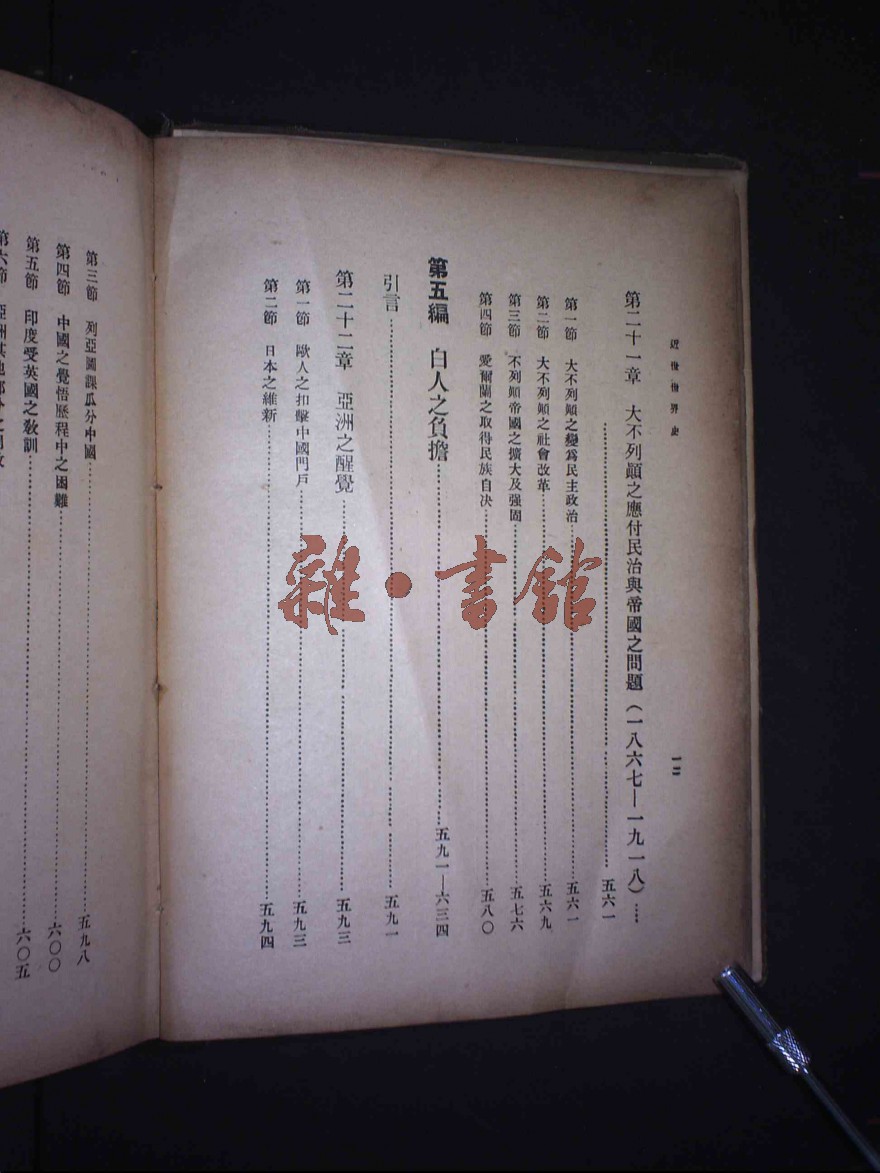 近世世界史
一二
第二十一章 大不列顚之應付民治與帝國之問題(一八六七—一九一八)……
……五六一
第一節 大不列顚之變爲民主政治……五六一
第二節 大不列顚之社會改革……五六九
第三節 不列顚帝國之擴大及强固……五七六
第四節 愛爾蘭之取得民族自決……五八〇
第五編 白人之負擔……五九一—六三四
引言……五九一
第二十二章 亞洲之醒覺……五九三
第一節 歐人之扣擊中國門戶……五九三
第二節 日本之維新……五九四
第三節 列亞圖謀瓜分中國……五九八
第四節 中國之覺悟歷程中之困難……六〇〇
第五節 印度受英國之敎訓……六〇五
第六節 亞洲其他部分之
雜·書館